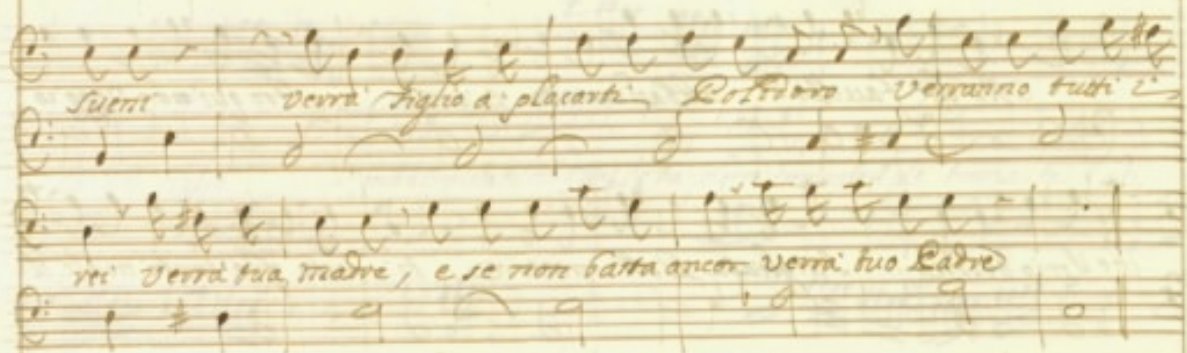 sueni verrà figlio a placarti Polidoro verranno tutti i
rei verrà tua madre, e se non basta ancor verrà tuo Padre